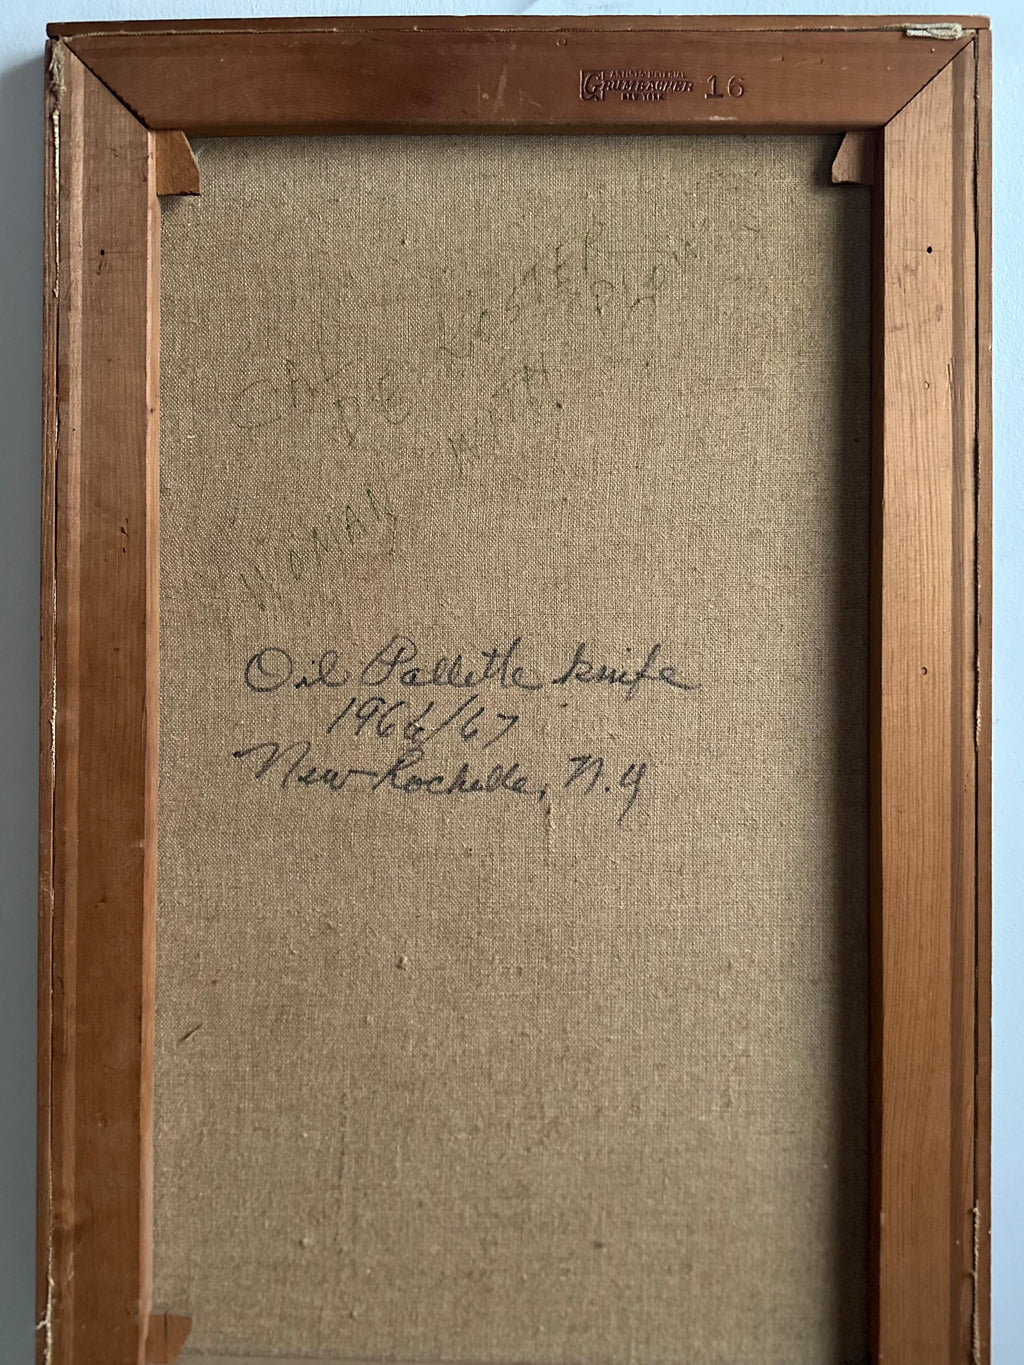 ARTISTS MATERIAL
GRUMBACHER
NEW YORK
16
WOMAN WITH
Oil Pallette knife
1966/67
New Rochelle, N.Y